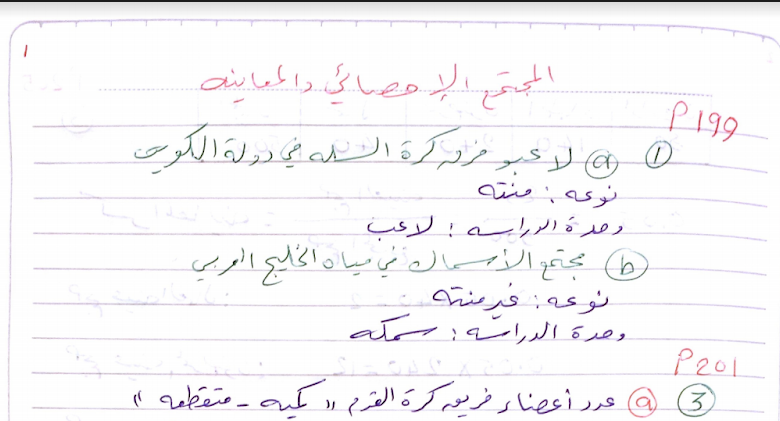 ١
المجتمع الإحصائي والمعاينه
P199
① ⓐ لاعبو فرق كرة السله في دولة الكويت
نوعه : منته
وحدة الدراسه : لاعب
ⓑ مجتمع الأسماك في مياه الخليج العربي
نوعه : غير منته
وحدة الدراسه : سمكه
P201
③ ⓐ عدد أعضاء فريق كرة القدم " كميه - متقطعه "